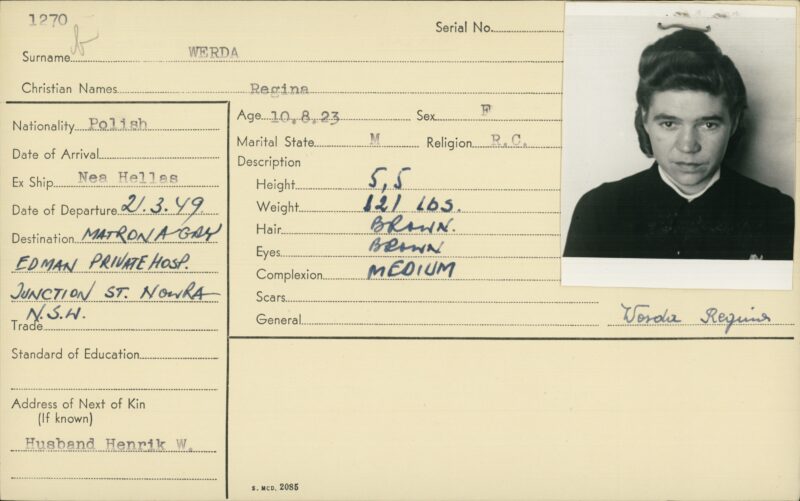 1270
Serial No.
Surname WERDA
Christian Names Regina
Nationality Polish
Date of Arrival
Ex Ship Nea Hellas
Date of Departure 21.3.49
Destination MATRON A GRAY
EDMAN PRIVATE HOSP.
JUNCTION ST. NOWRA
N.S.W.
Trade
Standard of Education
Address of Next of Kin
(If known)
Husband Henrik W.
Age 10.8.23 Sex F
Marital State M Religion R.C.
Description
Height 5,5
Weight 121 LBS.
Hair BROWN.
Eyes BROWN
Complexion MEDIUM
Scars
General
Werda Regina
S. MCD. 2085